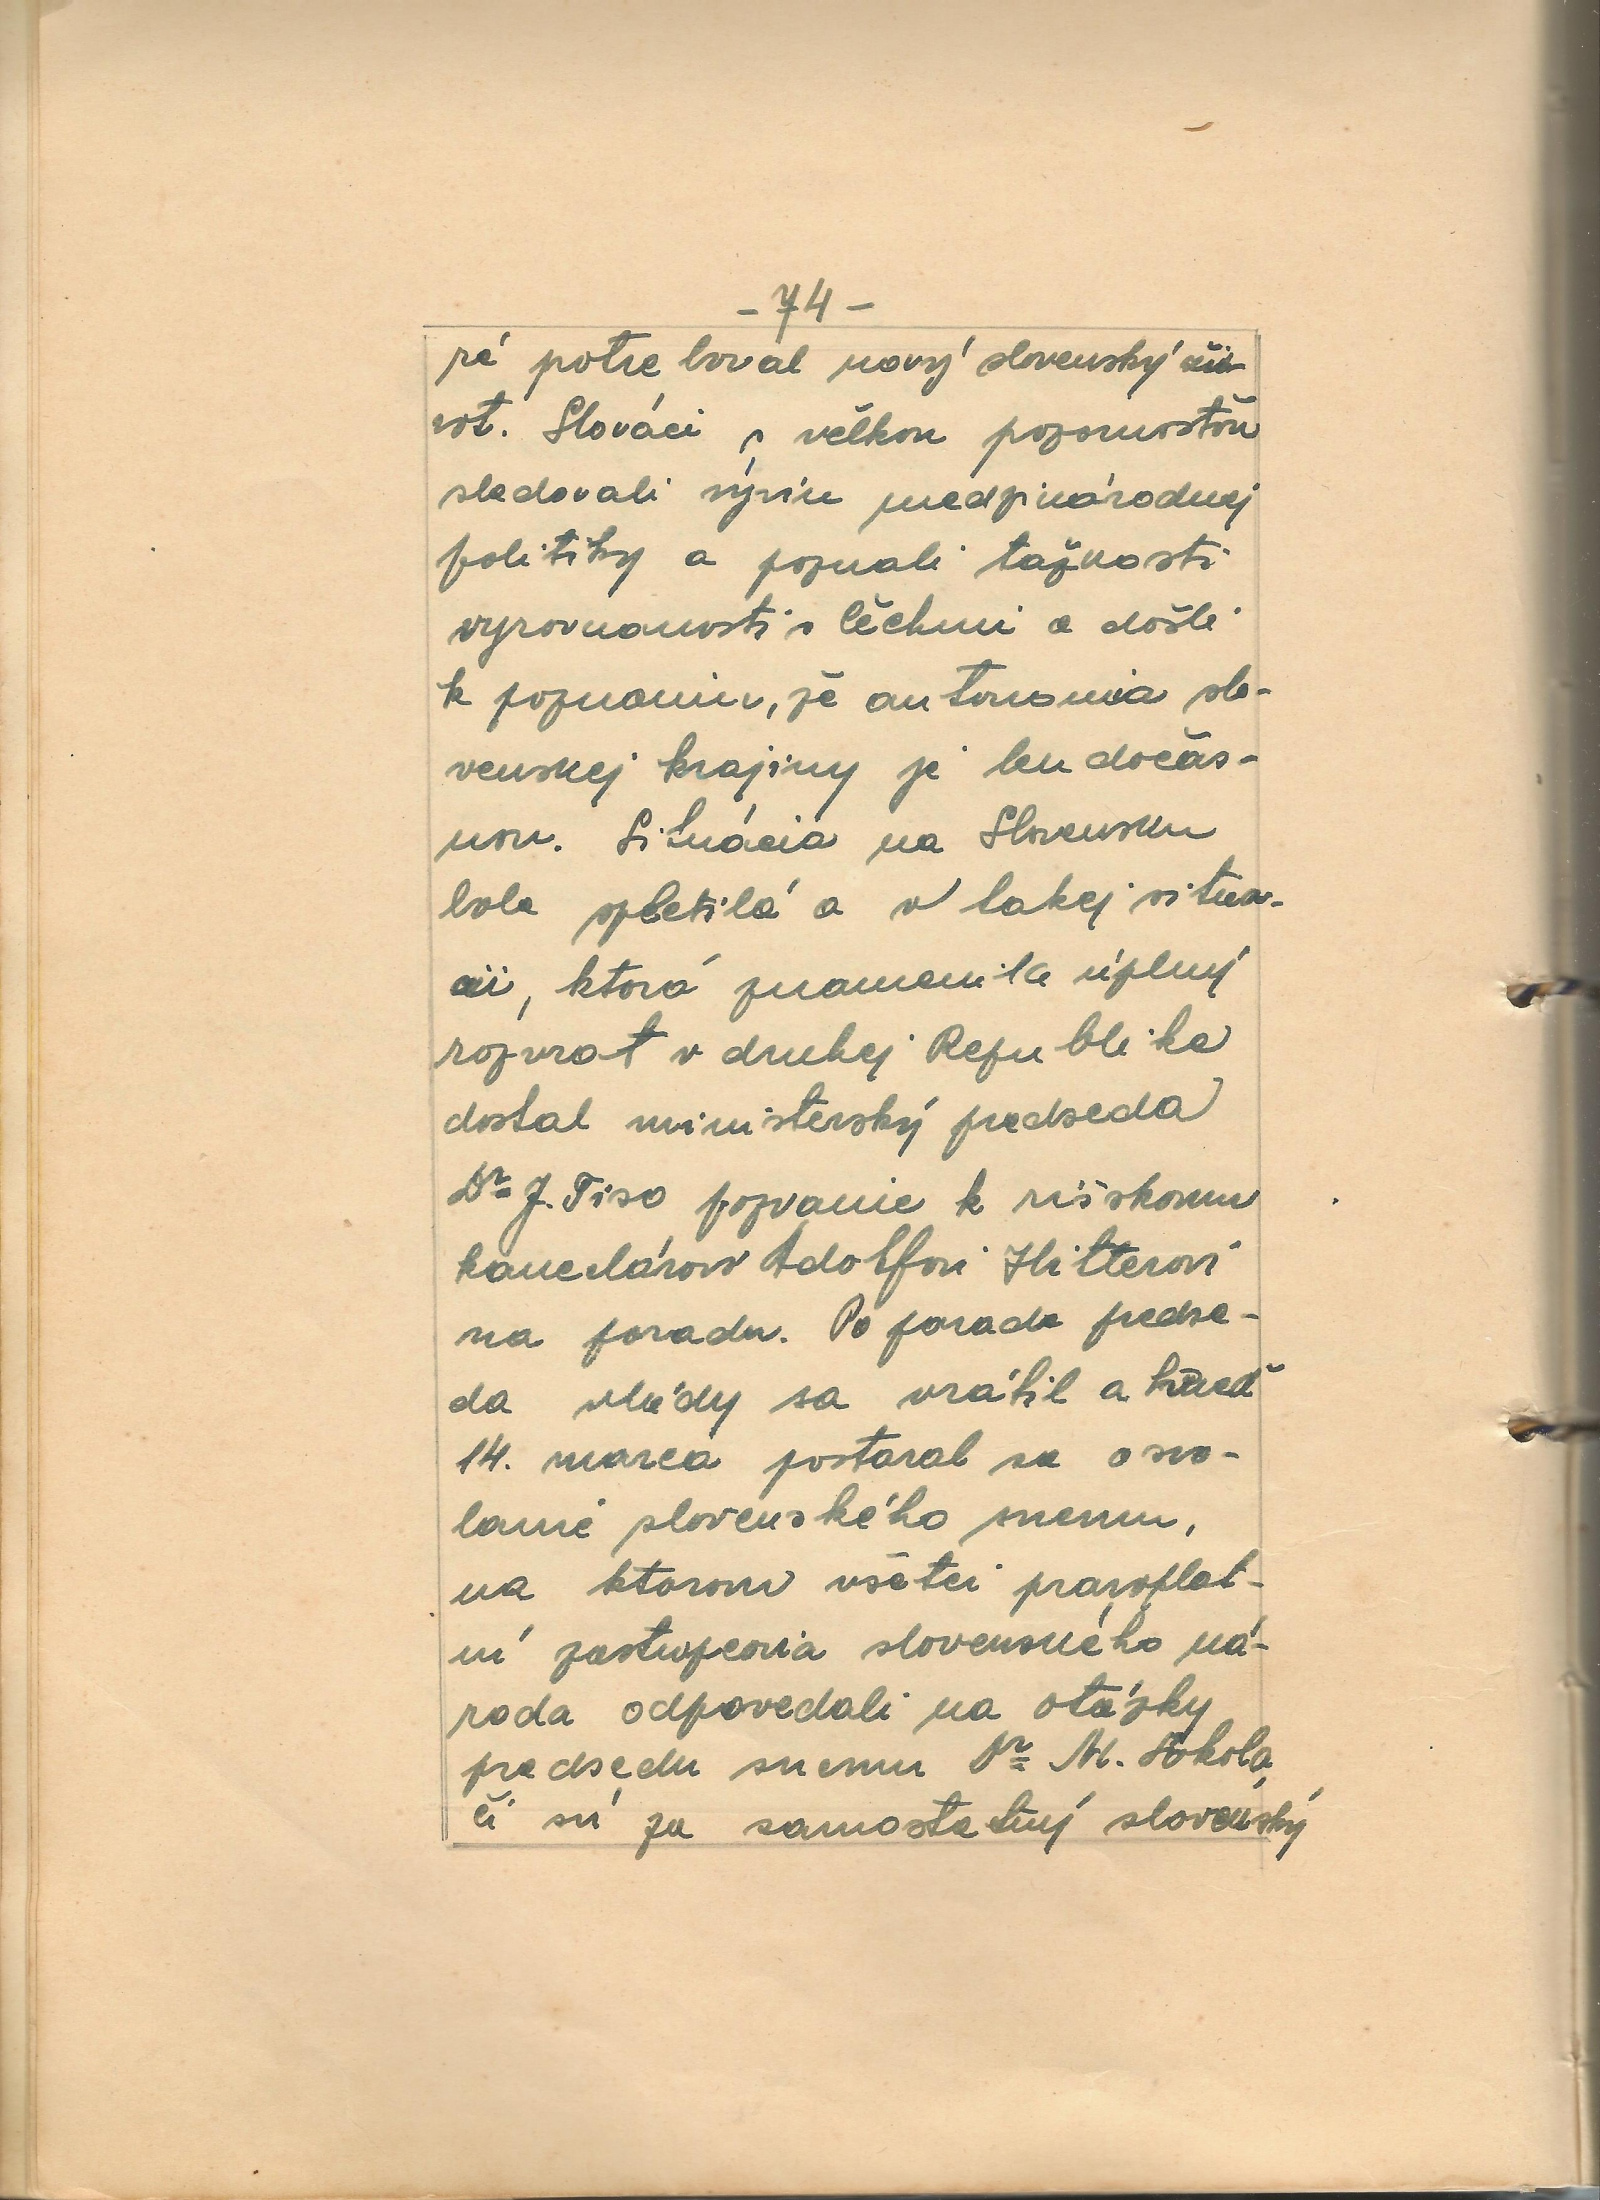 - 74 -
ré potreboval nový slovenský ži-
vot. Slováci s veľkou pozornosťou
sledovali vývin medzinárodnej
politiky a poznali ťažkosti
vyrovnanosti s Čechmi a došli
k poznaniu, že autonomia slo-
venskej krajiny je len dočas-
nou. Situácia na Slovensku
bola spletilá a v takej situa-
cii, ktorá znamenila úplný
rozvrat v druhej Republike
dostal ministerský predseda
Dr. J. Tiso pozvanie k ríšskomu
kancelárovi Adolfovi Hitlerovi
na poradu. Po porade predse-
da vlády sa vrátil a hneď
14. marca postaral sa o svo-
lanie slovenského snemu,
na ktorom všetci pravoplat-
ní zastupcovia slovenského ná-
roda odpovedali na otázky
predsedu snemu Dr. M. Sokola,
či sú za samostatný slovenský